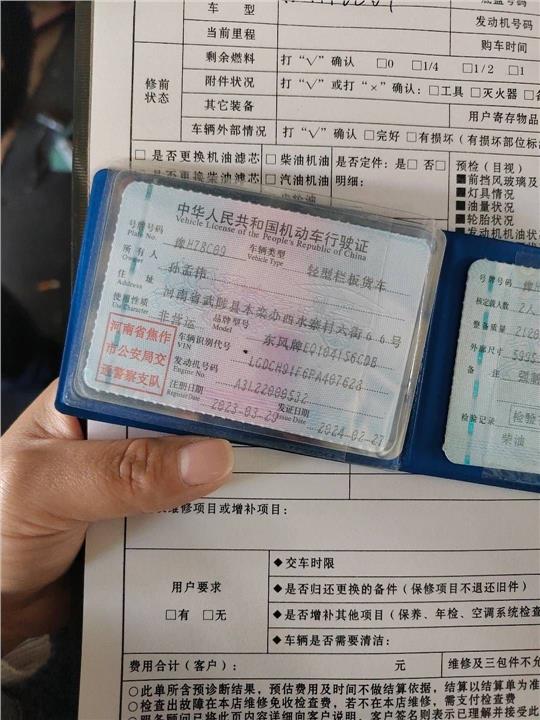 底盘号码
车 型
发动机号码
当前里程
购车时间
修前状态
剩余燃料 打“√”确认 □0 □1/4 □1/2 □1
附件状况 打“√”或打“×”确认：□工具 □灭火器
其它装备 用户寄存物品
车辆外部情况 打“√”确认 □完好 □有损坏（有损坏部位标
□是否更换机油滤芯 □柴油机油 是否定件：是□ 否□ 预检（目视）
是否更换柴油滤芯 □汽油机油 明细： ■前挡风玻璃及
■灯具情况
■油量状况
■轮胎状况
■发动机机油状
中华人民共和国机动车行驶证
Vehicle License of the People's Republic of China
号牌号码 豫HZ8C09 车辆类型 轻型栏板货车
Plate No. Vehicle Type
所有人 孙孟伟
Owner
住 址 河南省武陟县木栾办西水寨村六街66号
Address
使用性质 非营运 品牌型号 东风牌EQ1041S6CDB
Use Character Model
河南省焦作市公安局交通警察支队
车辆识别代号
VIN
发动机号码 A3L22000532
Engine No.
注册日期 2023-03-29 发证日期 2024-02-27
Register Date Issue Date
号牌号码 豫H
核定载人数 2人
整备质量
外廓尺寸
备 注 强制
检验记录 检验
柴油
维修项目或增补项目：
用户要求
□有 □无
◆交车时限
◆是否归还更换的备件（保修项目不退还旧件）
◆是否增补其他项目（保养、年检、空调系统检查
◆车辆是否需要清洁：
费用合计（客户）： 元 维修及三包件不允
○此单所含预诊断结果，预估费用及时间不做结算依据，结算以结算单为准
○检查出故障在本店维修免收检查费，若不在本店维修，需支付检查费
○服务顾问已将此页内容详细向客户说明，客户签名则表示已理解并接受此